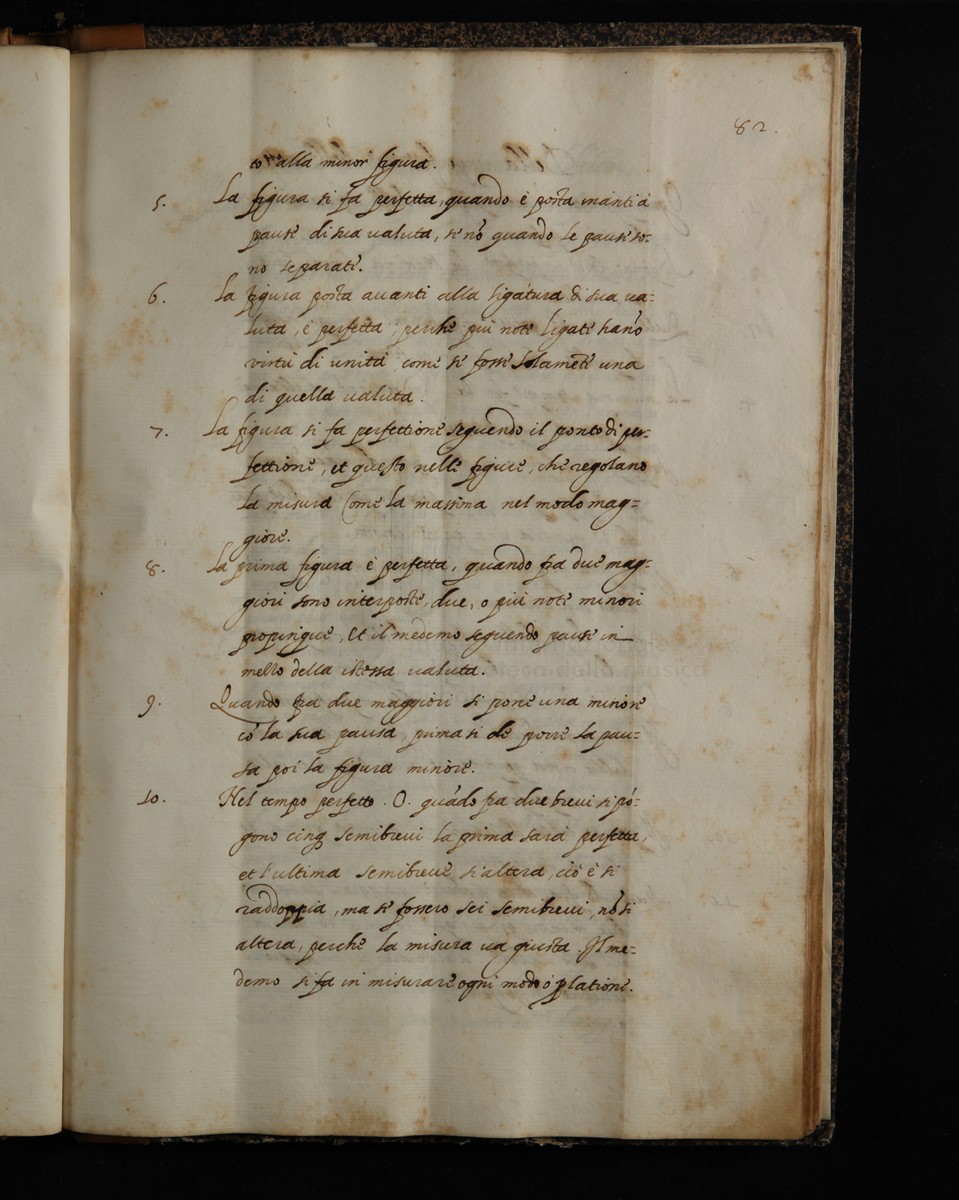 82.
to alla minor figura.
5. La figura si fa perfetta, quando è posta inanti à
pause di sua valuta, se nõ quando le pause so-
no separate.
6. La figura posta avanti alla ligatura di sua va-
luta, è perfetta; perche piu note ligate hano
virtù di unità, come se fosse solamete una
di quella valuta.
7. La figura si fa perfettione seguendo il ponto di per-
fettione, et questo nelle figure, che regolano
la misura Come la massima nel modo mag-
giore.
8. La prima figura è perfetta, quando fra due mag-
giori sono interposte, due, o più note minori
propinque, Et il medemo seguendo pause in
mezzo della istessa valuta.
9. Quando fra due maggiori si pone una minore
cõ la sua pausa, prima si de porre la pau-
sa poi la figura minore.
10. Nel tempo perfetto. O. quãdo fra due brevi si põ-
gono cinq semibrevi la prima sarà perfetta,
et l'ultima semibreve si altera, ciò è si
raddoppia, ma se fossero sei semibrevi, nõ si
altera, perche la misura va giusta. Il me-
demo si fa in misurare ogni modo ò platione.